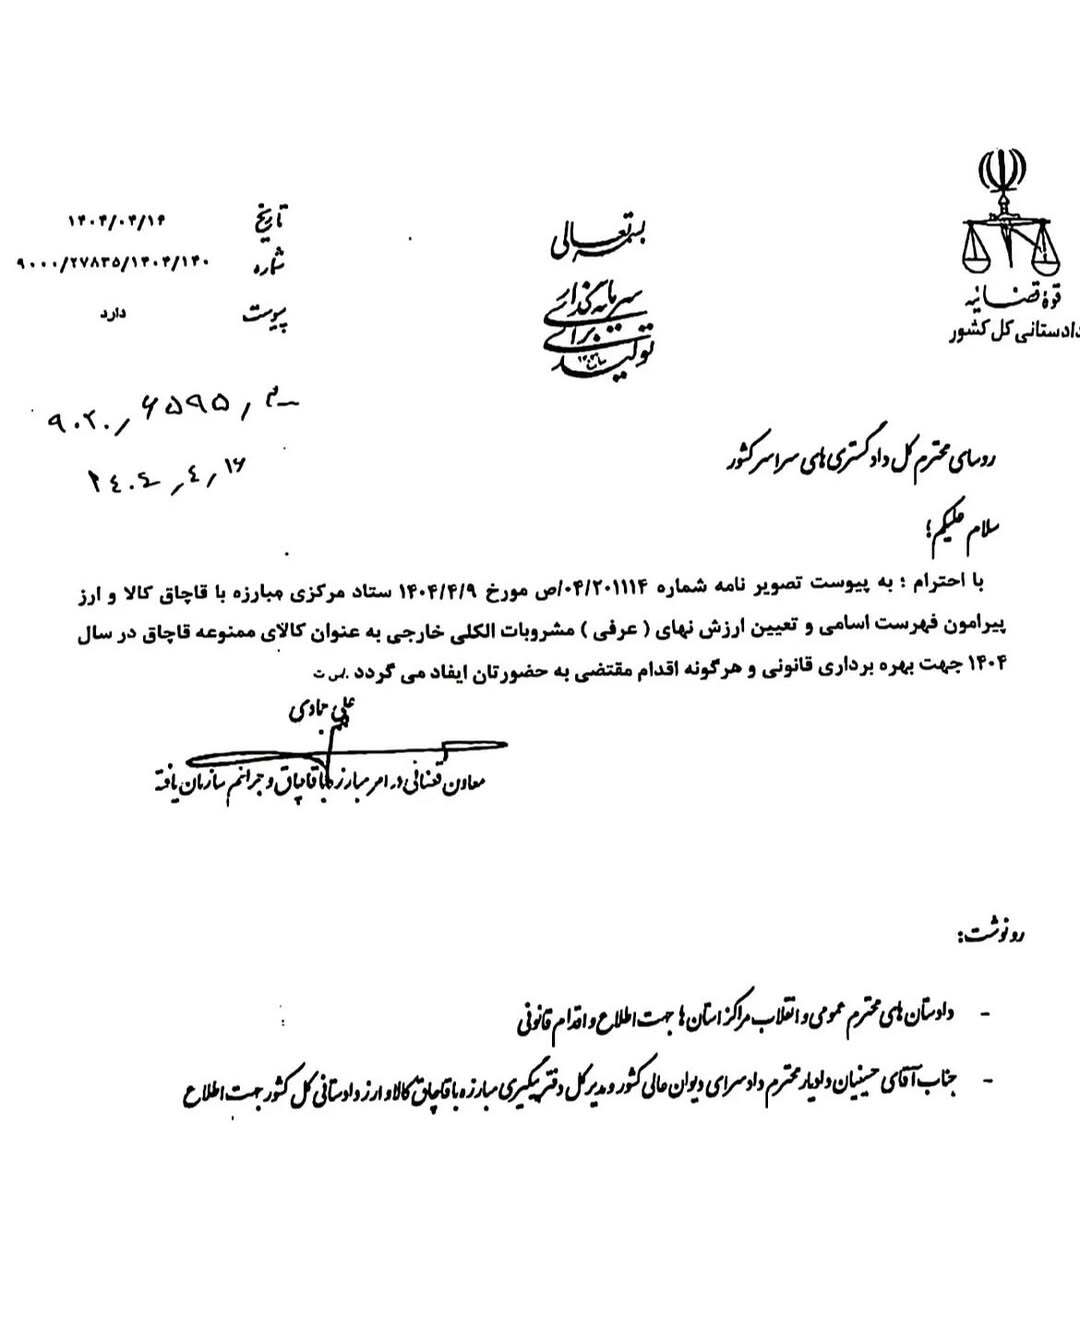 قوهٔ قضائیه
دادستانی کل کشور
بسمه تعالی
سرمایه گذاری
برای
تولید
تاریخ ۱۴۰۴/۰۴/۱۶
شماره ۹۰۰۰/۲۷۸۳۵/۱۴۰۴/۱۴۰
پیوست دارد
۹۰۲۰/۶۵۹۵/م
۲۴۰۴/۴/۱۶
روسای محترم کل دادگستری های سراسر کشور
سلام علیکم؛
با احترام ؛ به پیوست تصویر نامه شماره ۰۴/۲۰۱۱۱۴/ص مورخ ۱۴۰۴/۴/۹ ستاد مرکزی مبارزه با قاچاق کالا و ارز
پیرامون فهرست اسامی و تعیین ارزش نهای ( عرفی ) مشروبات الکلی خارجی به عنوان کالای ممنوعه قاچاق در سال
۱۴۰۴ جهت بهره برداری قانونی و هرگونه اقدام مقتضی به حضورتان ایفاد می گردد .
علی جمادی
معاون قضائی در امر مبارزه با قاچاق و جرائم سازمان یافته
رونوشت:
- دادستان های محترم عمومی و انقلاب مراکز استان ها جهت اطلاع و اقدام قانونی
- جناب آقای حسینیان دادیار محترم دادسرای دیوان عالی کشور و مدیر کل دفتر پیگیری مبارزه با قاچاق کالا و ارز دادستانی کل کشور جهت اطلاع